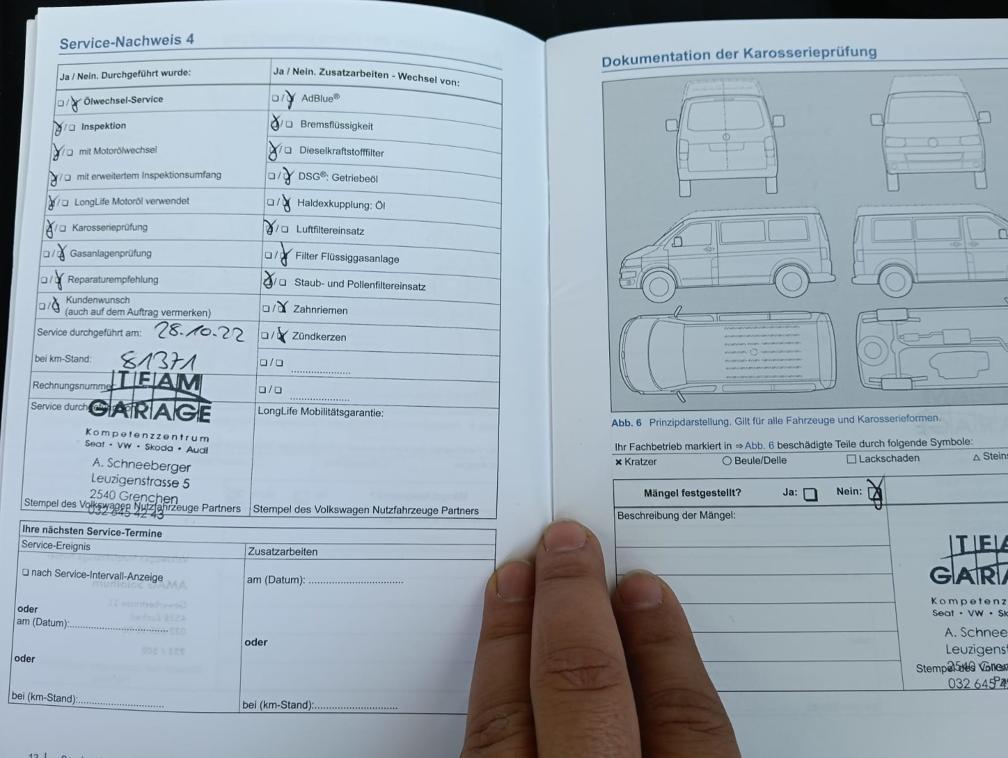 Service-Nachweis 4
Ja / Nein. Durchgeführt wurde:
Ölwechsel-Service
Inspektion
mit Motorölwechsel
mit erweitertem Inspektionsumfang
LongLife Motoröl verwendet
Karosserieprüfung
Gasanlagenprüfung
Reparaturempfehlung
Kundenwunsch
(auch auf dem Auftrag vermerken)
Service durchgeführt am: 28.10.22
bei km-Stand: 81371
Rechnungsnumme
Service durch
TEAM
GARAGE
Kompetenzzentrum
Seat • VW • Skoda • Audi
A. Schneeberger
Leuzigenstrasse 5
2540 Grenchen
032 645 42 43
Stempel des Volkswagen Nutzfahrzeuge Partners
Ja / Nein. Zusatzarbeiten - Wechsel von:
AdBlue®
Bremsflüssigkeit
Dieselkraftstofffilter
DSG®: Getriebeöl
Haldexkupplung: Öl
Luftfiltereinsatz
Filter Flüssiggasanlage
Staub- und Pollenfiltereinsatz
Zahnriemen
Zündkerzen
LongLife Mobilitätsgarantie:
Stempel des Volkswagen Nutzfahrzeuge Partners
Ihre nächsten Service-Termine
Service-Ereignis
nach Service-Intervall-Anzeige
oder
am (Datum):
oder
bei (km-Stand):
Zusatzarbeiten
am (Datum):
oder
bei (km-Stand):
Dokumentation der Karosserieprüfung
Abb. 6 Prinzipdarstellung. Gilt für alle Fahrzeuge und Karosserieformen.
Ihr Fachbetrieb markiert in ⇒ Abb. 6 beschädigte Teile durch folgende Symbole:
× Kratzer ○ Beule/Delle □ Lackschaden △ Steins
Mängel festgestellt? Ja: Nein:
Beschreibung der Mängel:
TEA
GARA
Kompetenz
Seat • VW • Sk
A. Schnee
Leuzigens
2540 Gren
032 645 4